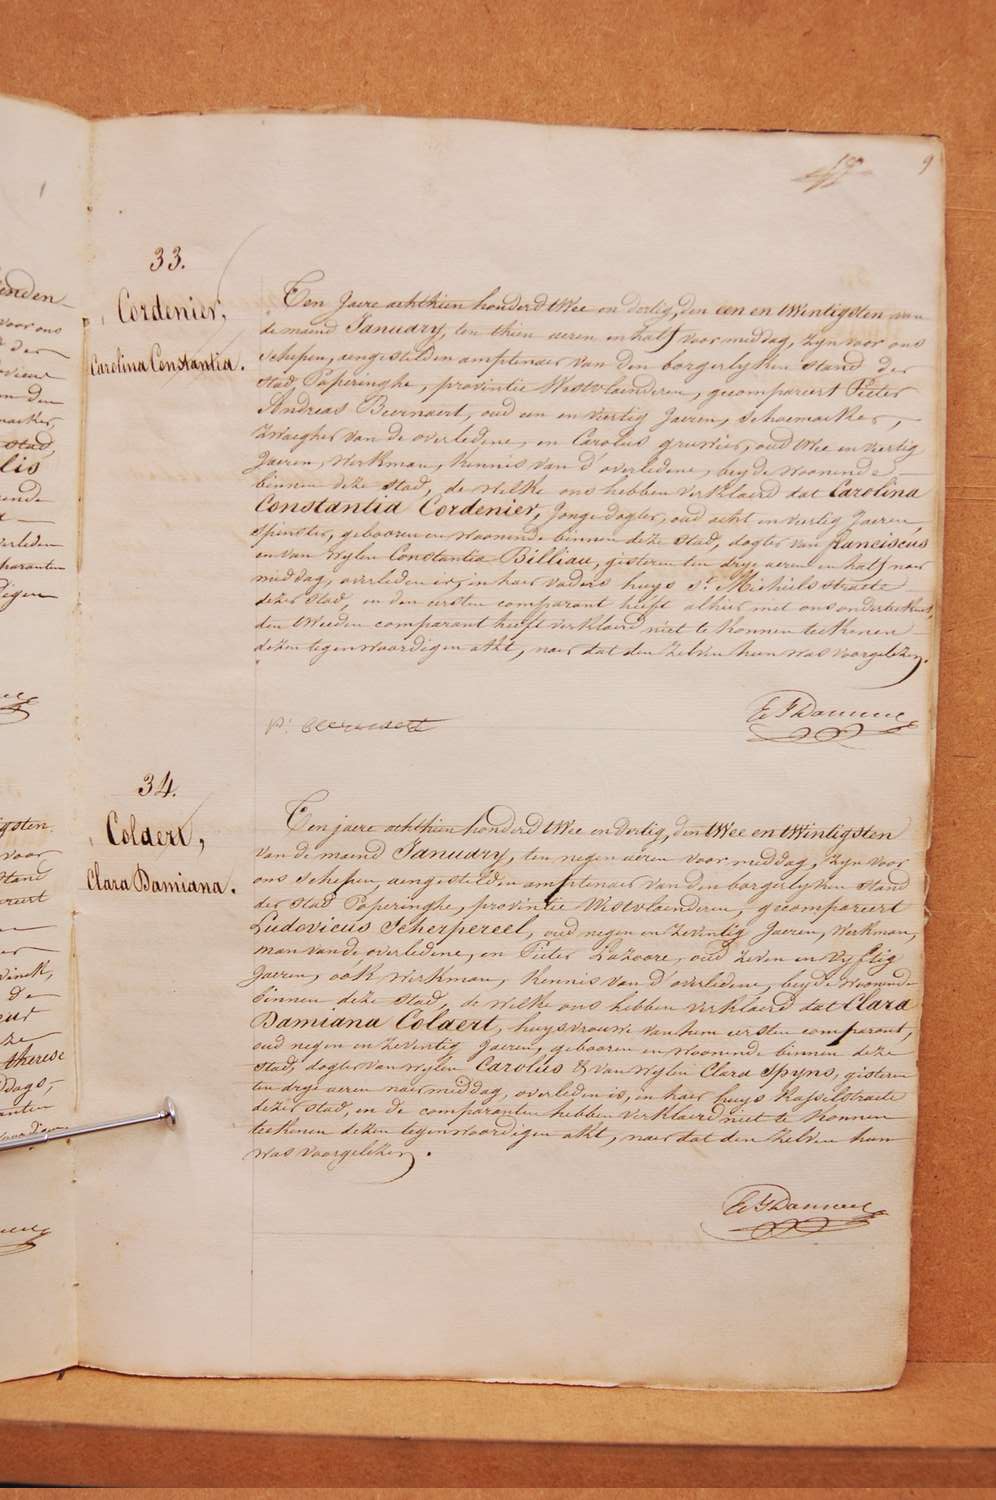 9
33.
Cordenier,
Carolina Constantia.
Ten Jaere achthien honderd twee en dertig, den een en twintigsten van
de maend January, ten thien ueren en half voor middag, zyn voor ons
Schepen, aengestelden amptenaer van den borgerlyken stand der
stad Poperinghe, provintie Westvlaenderen, gecompareert Pieter
Andreas Beernaert, oud een en viertig Jaeren, Schoemaeker,
zwaegher van de overledene, en Carolus gruwier, oud twee en viertig
Jaeren, Werkman, kennis van d'overledene, beyde woonende
binnen deze stad, de welke ons hebben verklaerd dat Carolina
Constantia Cordenier, jonge dogter, oud acht en viertig Jaeren,
spinster, gebooren en woonende binnen deze stad, dogter van franciscus
en van wylen Constantia Billiau, gisteren ten drye ueren en half naer
middag, overleden is, in haer vaders huys St. Michiels straete
dezer stad, en den eersten comparant heeft alhier met ons onderteekent,
den tweeden comparant heeft verklaerd niet te konnen teekenen
dezen tegenwoordigen akt, naer dat den zelven hun was voorgelezen.
p: Beernaert
34.
Colaert,
Clara Damiana.
Ten jaere achthien honderd twee en dertig, den twee en twintigsten
van de maend January, ten negen ueren voor middag, zyn voor
ons Schepen, aengestelden amptenaer van den borgerlyken stand
der stad Poperinghe, provintie Westvlaenderen, gecompareert
Ludovicus Scherpereel, oud negen en zeventig Jaeren, Werkman,
man van de overledene, en Pieter Lazoore, oud zeven en vyftig
Jaeren, ook werkman, kennis van d'overledene, beyde woonende
binnen deze stad, de welke ons hebben verklaerd dat Clara
Damiana Colaert, huysvrouwe van hem eersten comparant,
oud negen en zeventig Jaeren, gebooren en woonende binnen deze
stad, dogter van wylen Carolus & van wylen Clara Spyns, gisteren
ten drye ueren naer middag, overleden is, in haer huys Kasselstraete
dezer stad, en de comparanten hebben verklaerd niet te konnen
teekenen dezen tegenwoordigen akt, naer dat den zelven hun
was voorgelezen.